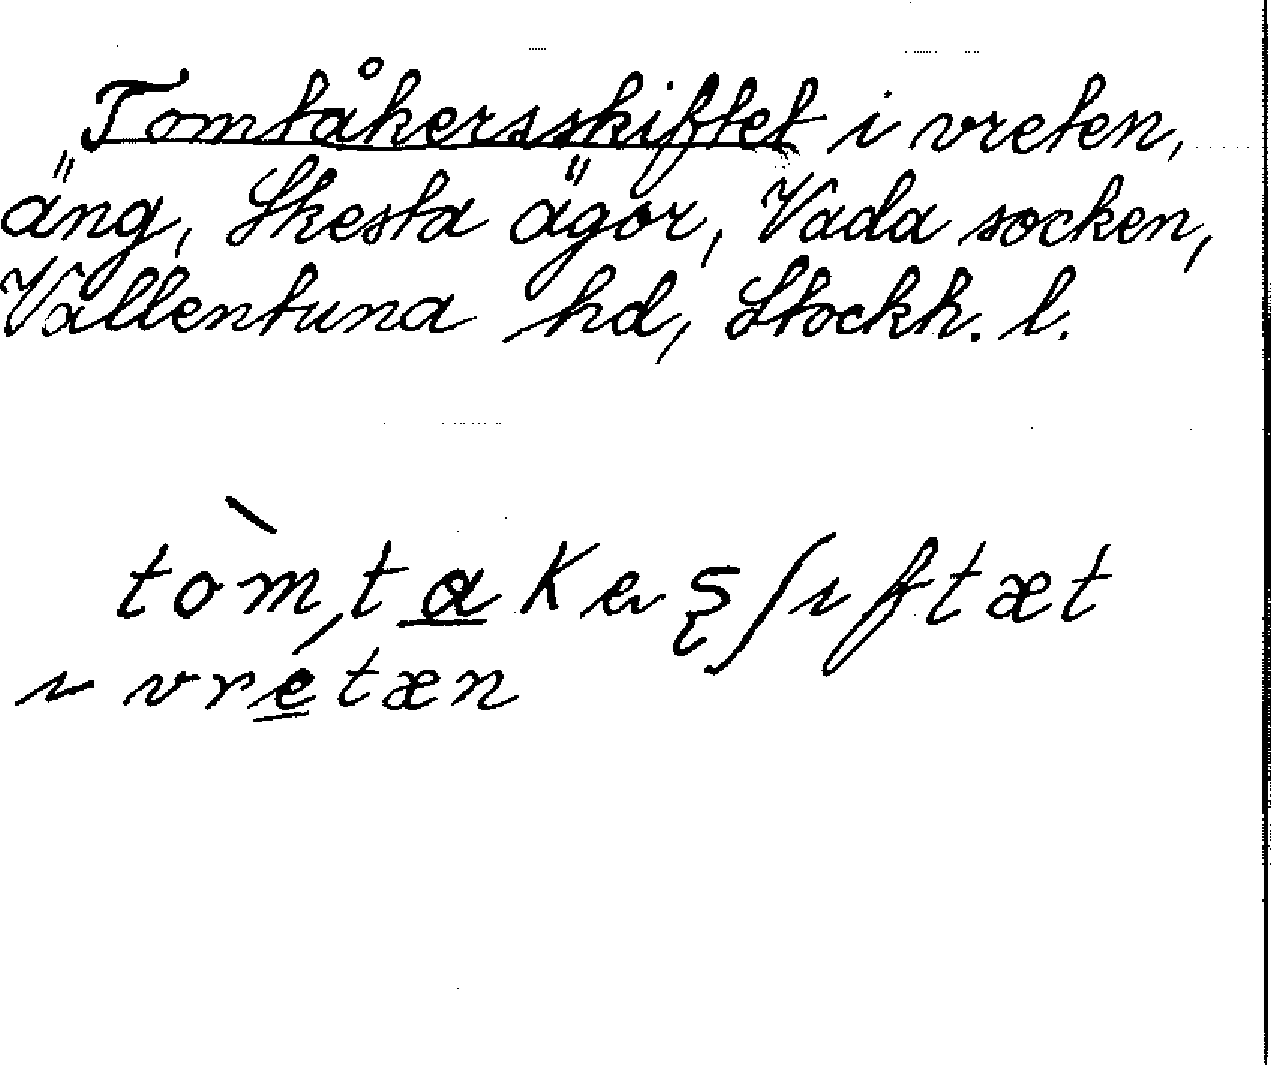 Tomtåkersskiftet i vreten,
äng, Skesta ägor, Vada socken,
Vallentuna hd, Stockh. l.
tòmtakeʂʃɩftæt
ɩ vretæn